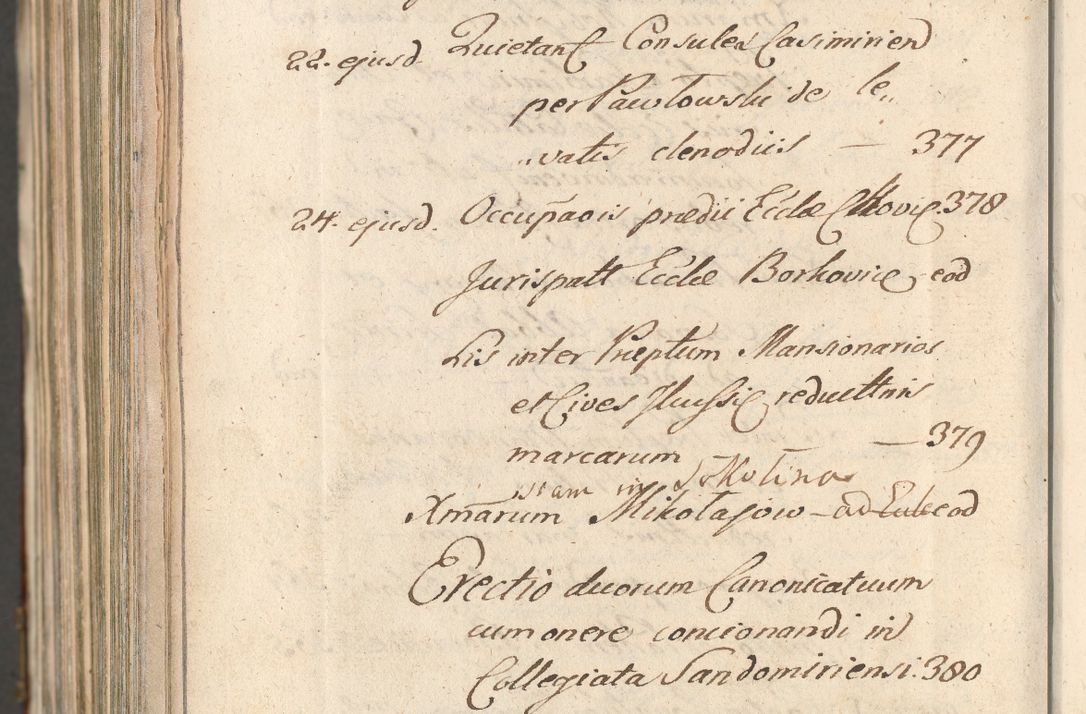 22. ejusd. Quietan Consules Casimirien
per Pawłowski de le,,
,,vatis clenodiis — 377
24. ejusd. Occupãois prædii Eccłæ 378
Jurispatt Eccłæ Borkovice eod
Lis inter Præptum Mansionarios
et Cives reducttnis
marcarum — 379
in Skotina
Xmãrum Mikołajow — ad eod
Erectio duorum Canonicatuum
cum onere concionandi in
Collegiata Sandomiriensi. 380